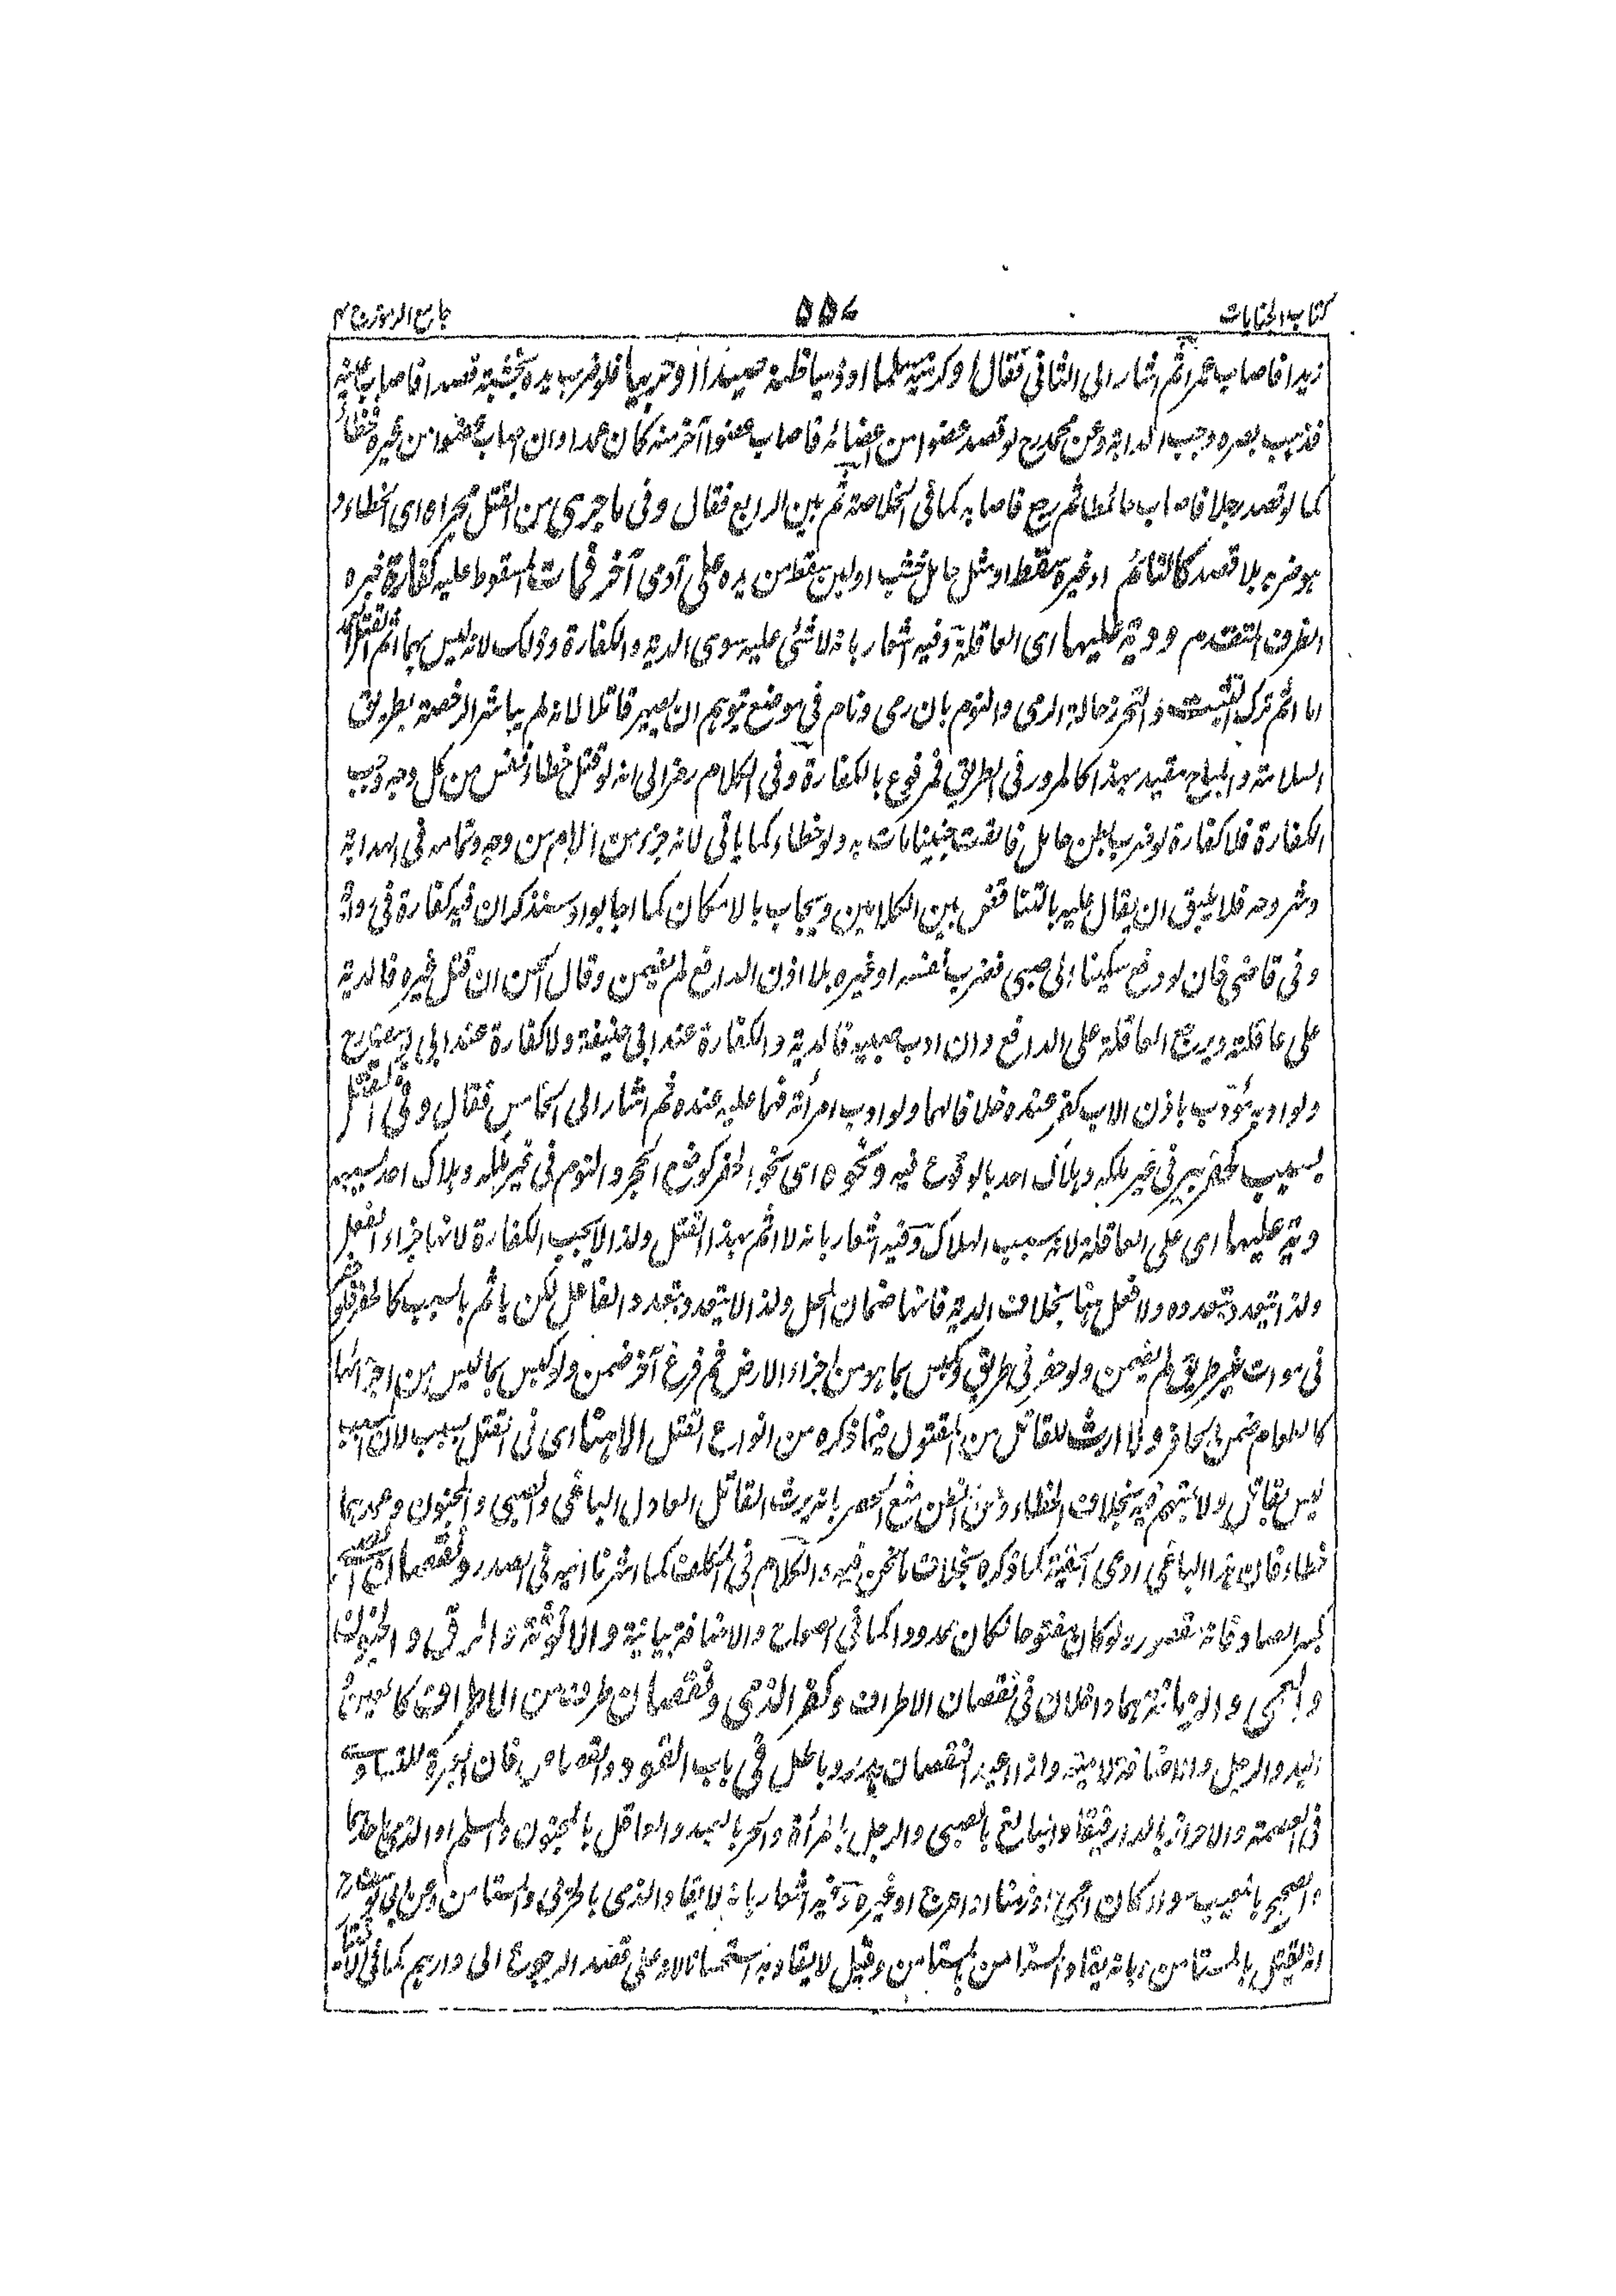 كتاب الجنايات ۵۵۷ جامع الرموز ج ۲
زيدا فاصاب عمرا ثم اشار الى الثانى فقال او كرميه مسلما او ذميا ظنه صيدا او حربيا فلو ضرب يده بخشبة قصدا فاصاب عينه
فذهب بصره وجب الدية وعن محمد رح لو قصد عضوا من اعضائه فاصاب عضوا آخر منه كان عمدا وان اصاب عضوا من غيره فخطأ
كما لو قصد رجلا فاصاب حائطا ثم رجع فاصابه كما فى الخلاصة ثم بين الرابع فقال وفى ما جرى من القتل مجراه اى الخطاء و
هو ضربه بلا قصد كالنائم او غيره سقط او مثل حامل خشب او لبن سقط من يده على آدمى آخر فمات المسقوط عليه كفارة خبره
الظرف المتقدم و دية عليها اى العاقلة وفيه اشعار بانه لا شئى عليه سوى الدية والكفارة وذلك لانه ليس بهما اثم القتل
اما اثم ترك التثبت والتحرز حالة الرمى والنوم بان رمى ونام فى موضع يتوهم ان يصير قاتلا لانه لم يباشر الرخصة بطريق
السلامة والمباح مقيد بهذا كالمرور فى الطريق فمرفوع بالكفارة وفى الكلام رمز الى انه لو قتل خطاء نفس من كل وجه وجب
الكفارة فلا كفارة لو ضرب بطن حامل فالقت جنينا مات به ولو خطاء كما ياتى لانه جزء من الام من وجه وتمامه فى الهداية
وشروحه فلا يليق ان يقال عليه بالتناقض بين الكلامين ويجاب بالامكان كما اجابوا وسنذكر ان فيه كفارة فى رواية
وفى قاضى خان لو دفع سكينا الى صبى فضرب نفسه او غيره بلا اذن الدافع لم يضمن وقال الحسن ان قتل غيره فالدية
على عاقلته ويرجع العاقلة على الدافع وان ادب صبيه فالدية والكفارة عند ابى حنيفة ولا كفارة عند ابى يوسف رح
ولو ادبه مؤدب باذن الاب كفر عنده خلافا لهما ولو ادب امرأته فما عليه عنده ثم اشار الى الخامس فقال وفى القتل
بسبب كحفر بير فى غير ملكه وهلاك احد بالوقوع فيه ونحوه اى نحو الحفر كوضع الحجر والنوم فى غير ملكه وهلاك احد بسببه
دية عليها اى على العاقلة لانه سبب الهلاك وفيه اشعار بانه لا اثم بهذا القتل ولذا لا يجب الكفارة لانها جزاء الفعل
ولذا يتعدد بتعدده ولا فعل هنا بخلاف الدية فانها ضمان المحل ولذا لا يتعدد بتعدد الفاعل لكن ياثم بالسبب كالحفر فلو حفر
فى موات غير طريق لم يضمن ولو حفر فى طريق وكبس بما هو من اجزاء الارض ثم فرغ آخر ضمن ولو كبس بما ليس من اجزائها
كالطعام ضمن الحافر ولا ارث للقاتل من المقتول فيما ذكره من انواع القتل الا هنا اى فى القتل بسبب لان المسبب
ليس بقاتل ولا يتهم فيه بخلاف الخطاء ومن الظن منع الحصر بانه يرث القاتل العادل الباغى والصبى والمجنون وعمدهما
خطاء فان هذا الباغى الحنفية كما ذكره بخلاف ما نحن فيه والكلام فى المكلف كما اشرنا اليه فى الصدر
بكسر الصاد وقاته بقصره ولو كان مفتوحا لكان ممدودا كما فى الصحاح والاضافة بيانية والانوثة والرق والجنون
والعمى والزمانة هما داخلان فى نقصان الاطراف وكفر الذمى ونقصان طرف من الاطراف كالعين
اليد والرجل والاضافة لامية واذا هذا النقصان هدر وباطل فى باب القود والقصاص فان العبرة للتساوى
فى العصمة والاحراز بالدار فيقاد البالغ بالصبى والرجل بالمرأة والحر بالعبد والعاقل بالمجنون والمسلم او الذمى
والصحيح بالمعيب سواء كان اعمى او زمنا او اعرج او غيره وفيه اشعار بانه لا يقاد الذمى بالحربى والمستامن وعن ابى يوسف رح
انه يقتل بالمستامن وبانه يقاد المستامن بالمستامن وقيل لا يقاد به استحسانا لانه على قصد الرجوع الى دارهم كما فى